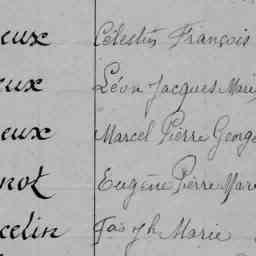 eux Célestin François
eux Léon Jacques Marie
eux Marcel Pierre George
not Eugène Pierre Mar
celin Joseph Marie